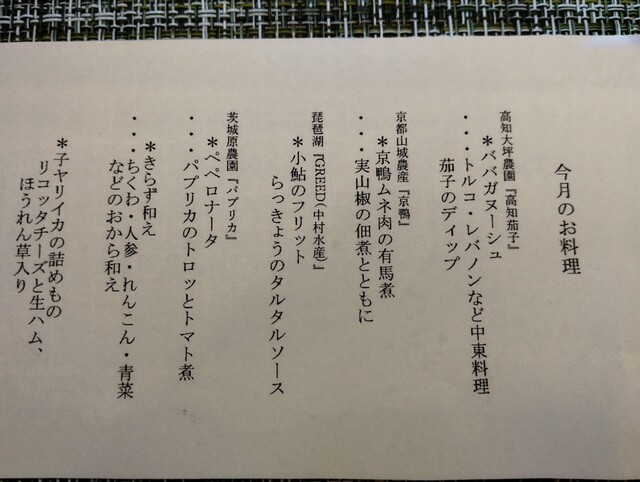 今月のお料理
高知大坪農園『高知茄子』
＊ババガヌーシュ
・・・トルコ・レバノンなど中東料理
茄子のディップ
京都山城農産『京鴨』
＊京鴨ムネ肉の有馬煮
・・・実山椒の佃煮とともに
琵琶湖『GREED(中村水産)』
＊小鮎のフリット
らっきょうのタルタルソース
茨城原農園『パプリカ』
＊ペペロナータ
・・・パプリカのトロッとトマト煮
＊きらず和え
・・・ちくわ・人参・れんこん・青菜
などのおから和え
＊子ヤリイカの詰めもの
リコッタチーズと生ハム、
ほうれん草入り